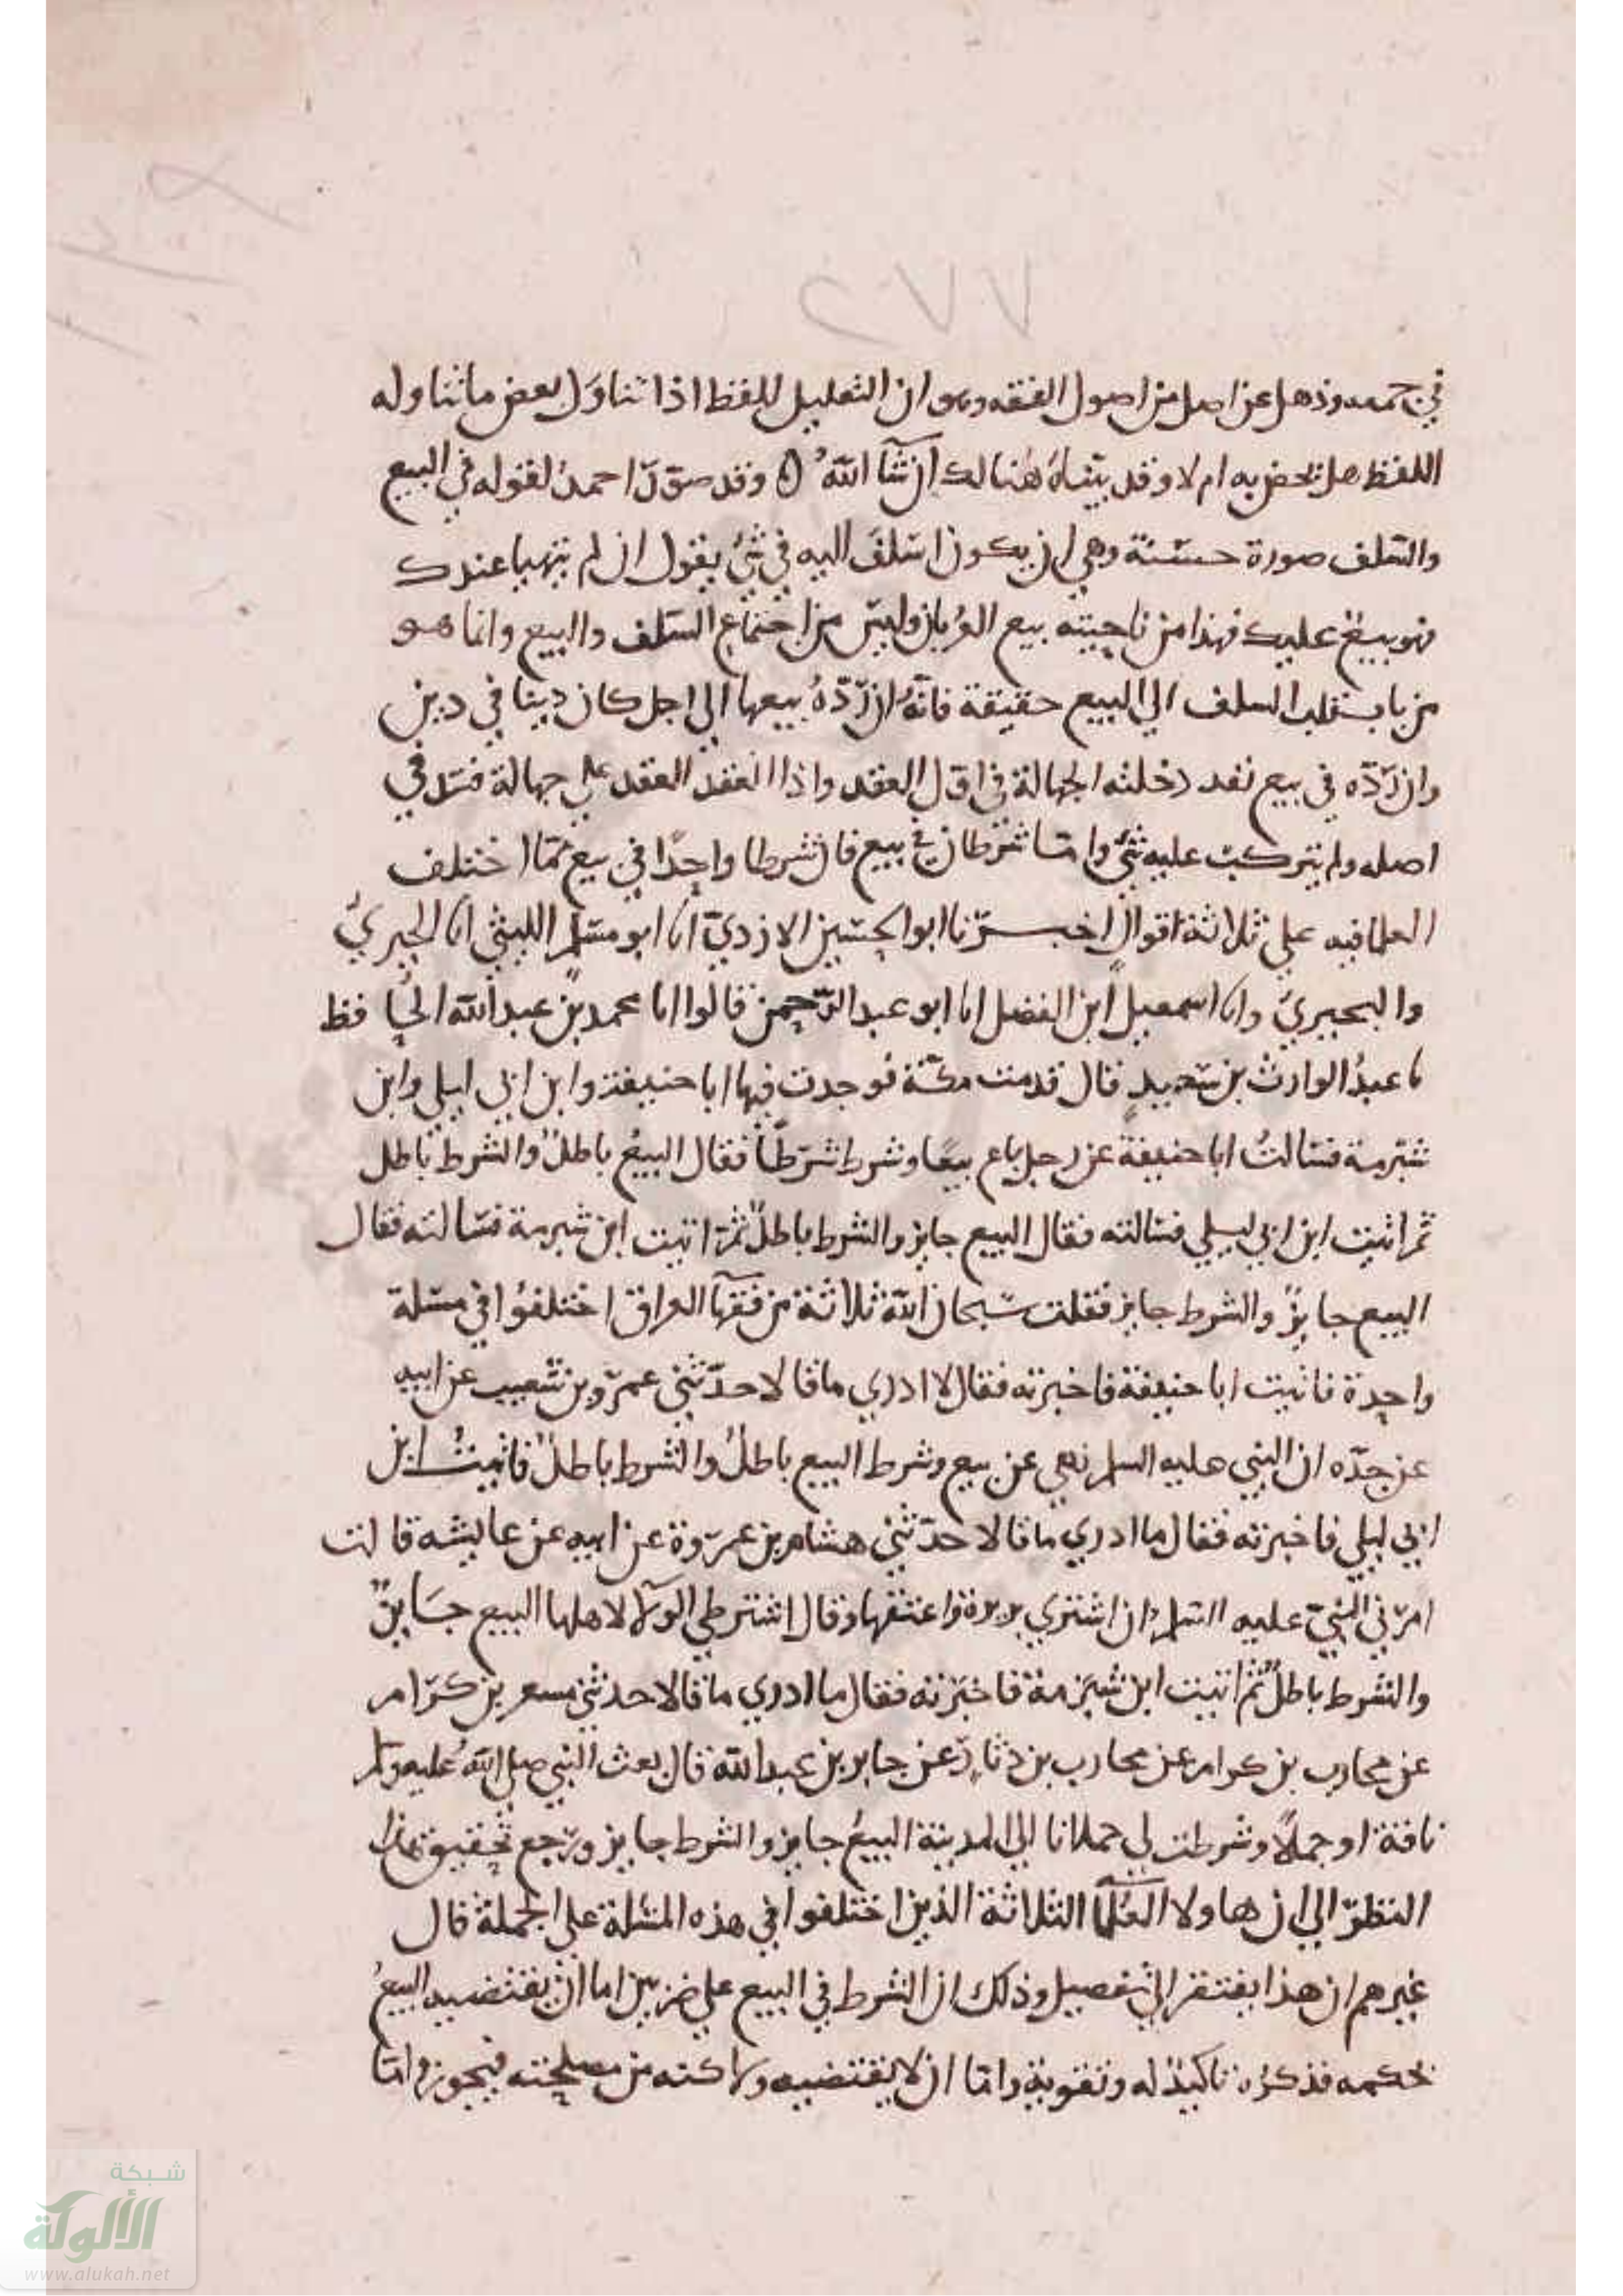 ٢٧٧
في جمعه وذهل عن اصل من اصول الفقه وهو ان التعليل للفظ اذا تناول بعض ما تناوله
اللفظ هل يخص به ام لا وقد بيناه هنالك ان شآ الله ه وقد صوّر احمد لقوله في البيع
والسلف صورة حسنة وهي ان يكون اسلف اليه في شئ يقول ان لم يتهيا عندك
فهو بيع عليك فهذا من ناحيته بيع العربان وليس من اجتماع السلف والبيع وانما هو
من باب السلف الي البيع حقيقة فانه ان ردّه بيعها الي اجل كان دينا في دين
وان ردّه في بيع نقد دخلته الجهالة في اول العقد واذا انعقد العقد علي جهالة فسد في
اصله ولم يتركب عليه شئ واما شرطان في بيع فان شرطا واحدا في بيع مما اختلف
العلما فيه علي ثلاثة اقوال اخبرنا ابو الحسين الازديّ انا ابو مسلم الليثي انا الجيريُّ
والبحيريّ وانا اسمعيل ابن الفضل انا ابو عبد الرّحمن قالوا انا محمد بن عبد الله الحافظ
نا عبدُ الوارث بن سعيدٍ قال قدمت مكة فوجدت فيها ابا حنيفة وابن ابي ليلي وابن
شبرمة فسالتُ ابا حنيفة عن رجل باع بيعًا وشرط شرطًا فقال البيعُ باطلٌ والشرط باطل
ثم اتيت ابن ابي ليلي فسالته فقال البيع جايز والشرط باطلٌ ثم اتيت ابن شبرمة فسالته فقال
البيع جايزٌ والشرط جايز فقلت سبحان الله ثلاثة من فقهآ العراق اختلفوا في مسلة
واحدة فاتيت ابا حنيفة فاخبرته فقال لا ادري ما قالا حدّثني عمرو بن شعيب عن ابيه
عن جدّه ان النبي عليه السلم نهي عن بيع وشرط البيع باطلٌ والشرط باطلٌ فاتيتُ ابن
ابي ليلي فاخبرته فقال ما ادري ما قالا حدّثني هشام بن عروة عن ابيه عن عايشه قالت
امرني النبيّ عليه السلم ان اشتري بريرة واعتقها وقال اشترطي الولآ لاهلها البيع جَايزٌ
والشرط باطلٌ ثم اتيت ابن شبرمة فاخبرته فقال ما ادري ما قالا حدثني مسعر بن كرام
عن محارب بن كرام عن محارب بن دثارٍ عن جابر بن عبد الله قال بعث النبي صلي الله عليه وسلم
ناقة او جملاً وشرطت لي حملانا الي المدينة البيعُ جايز والشرط جايز ويرجع تحقيق هذا
النظر الي ان هاولا العُلمآ الثلاثة الذين اختلفوا في هذه المسلة علي الجملة قال
غيرهم ان هذا يفتقر الي تفصيل وذلك ان الشرط في البيع علي ضربين اما ان يقتضيه البيعُ
بحكمه فذكره تاكيدٌ له وتقوية واما ان لا يقتضيه ولاكنه من مصلحته فيجوز واما
شبكة
الألوكة
www.alukah.net